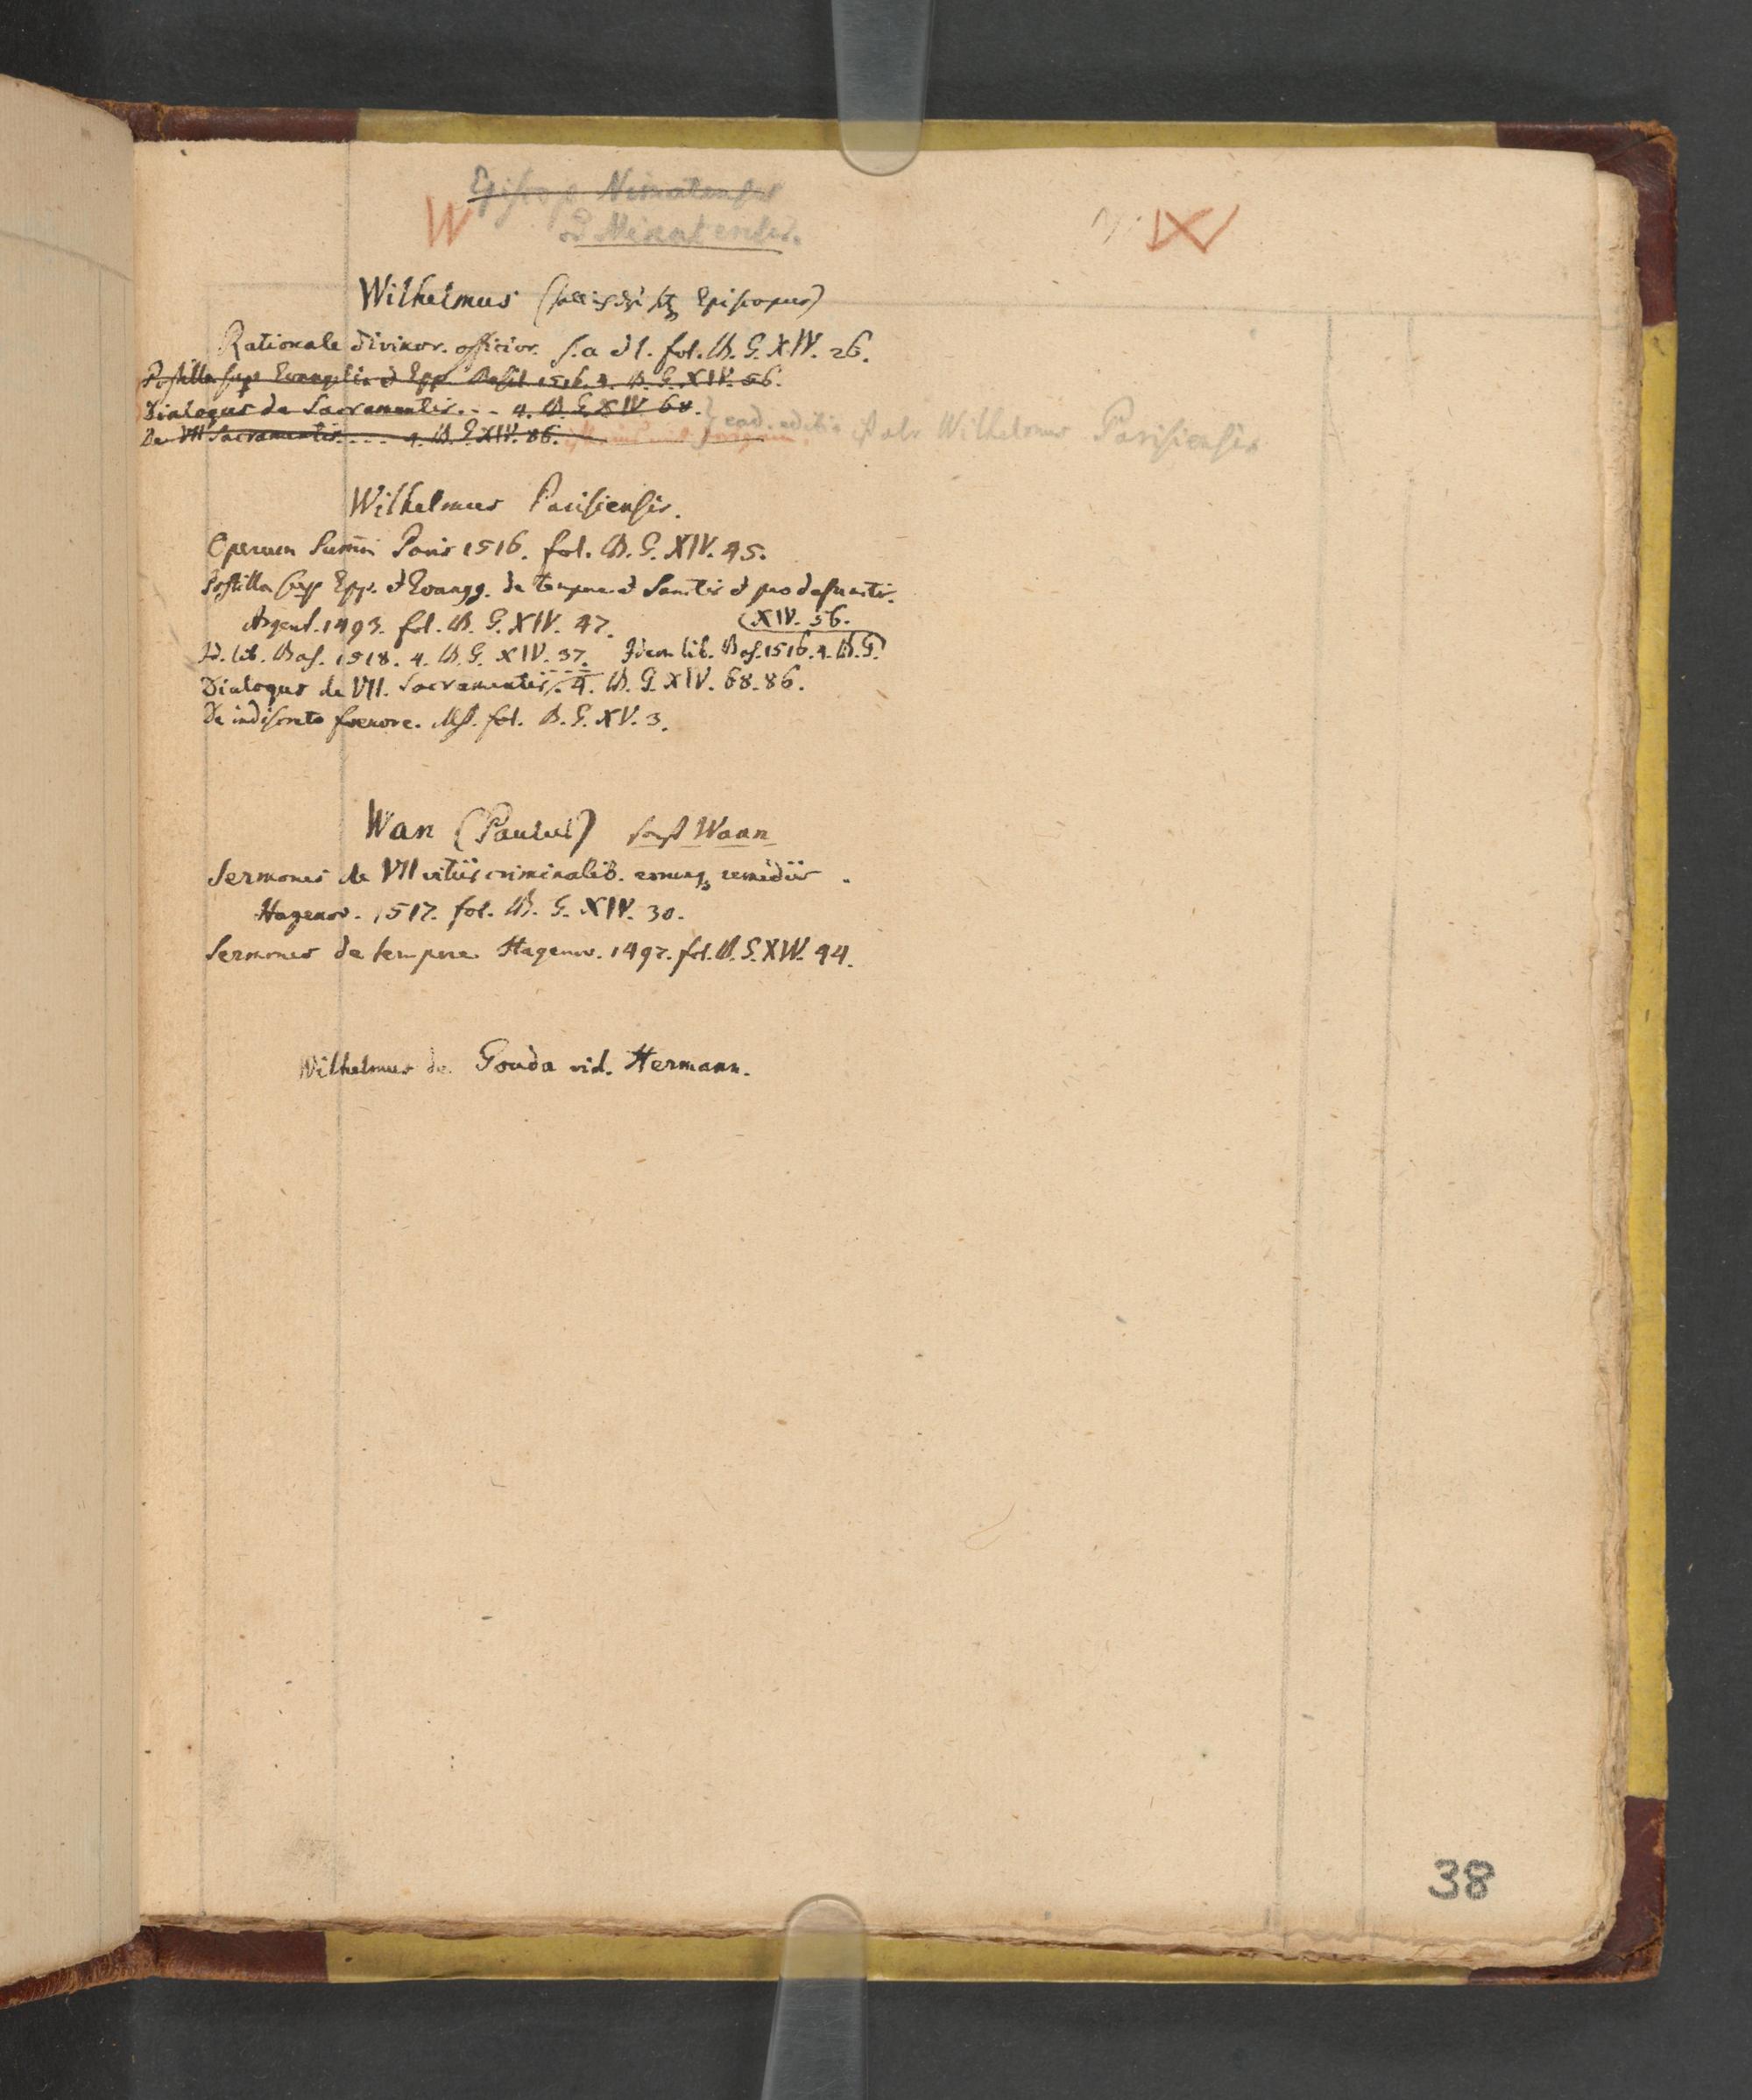 Episcop. Nimatensis
W Mimatensis.
Wilhelmus ( Episcopus)
Rationale divinor. officior. s. a et l. fol. B. G. XIV. 26.
Postilla sup Evangelia et Epp. Basil 1516. 4. B. G. XIV. 56.
Dialogus de Sacramentis. - - 4. B. G. XIV 68.
ead. editio Wilhelmus Parisiensis
De VII Sacramentis. - - - 4. B. G. XIV. 86.
Wilhelmus Parisiensis.
Operum Summi Paris 1516. fol. B. G. XIV. 45.
Postilla sup Epp. et Evangg. de tempore et Sanctis et pro defunctis.
Argent. 1493. fol. B. G. XIV. 47. (XIV. 56.
Id. lib. Bas. 1518. 4. B. G. XIV. 37. Idem lib. Bas. 1516. 4. B. G.)
Dialogus de VII. Sacramentis. 4. B. G. XIV. 68. 86.
De indiscreto foenore. Mst. fol. B. G. XV. 3.
Wan (Paulus) Waan
Sermones de VII vitiis criminalib. eorumq remediis.
Hagenov. 1517. fol. B. G. XIV. 30.
Sermones de tempore Hagenov. 1497. fol. B. G. XIV. 44.
Wilhelmus de Gouda vid. Hermann.
38